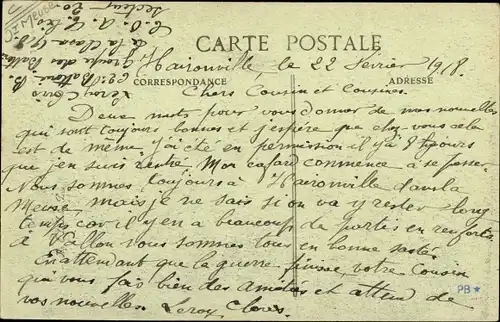 57 Meuse
CARTE POSTALE
Haironville le 22 Fevrier 1918.
CORRESPONDANCE
ADRESSE
Chers Cousin et Cousines
Deux mots pour vous donner de nos nouvelles
qui sont toujours bonnes et j'espère que chez vous cela
est de même j'ai été en permission il y a 8 jours
que j'en suis rentré Mon cafard commence à se passer
Nous sommes toujours à Haironville dans la
Meuse mais je ne sais si on va y rester long
temps car il y en a beaucoup de partis en renforts
à nous sommes tous en bonne santé
En attendant que la guerre finisse votre Cousin
qui vous fais bien des amitiés et attend de
vos nouvelles Leroy
PB
Leroy
de la Classe 1918
Secteur 20